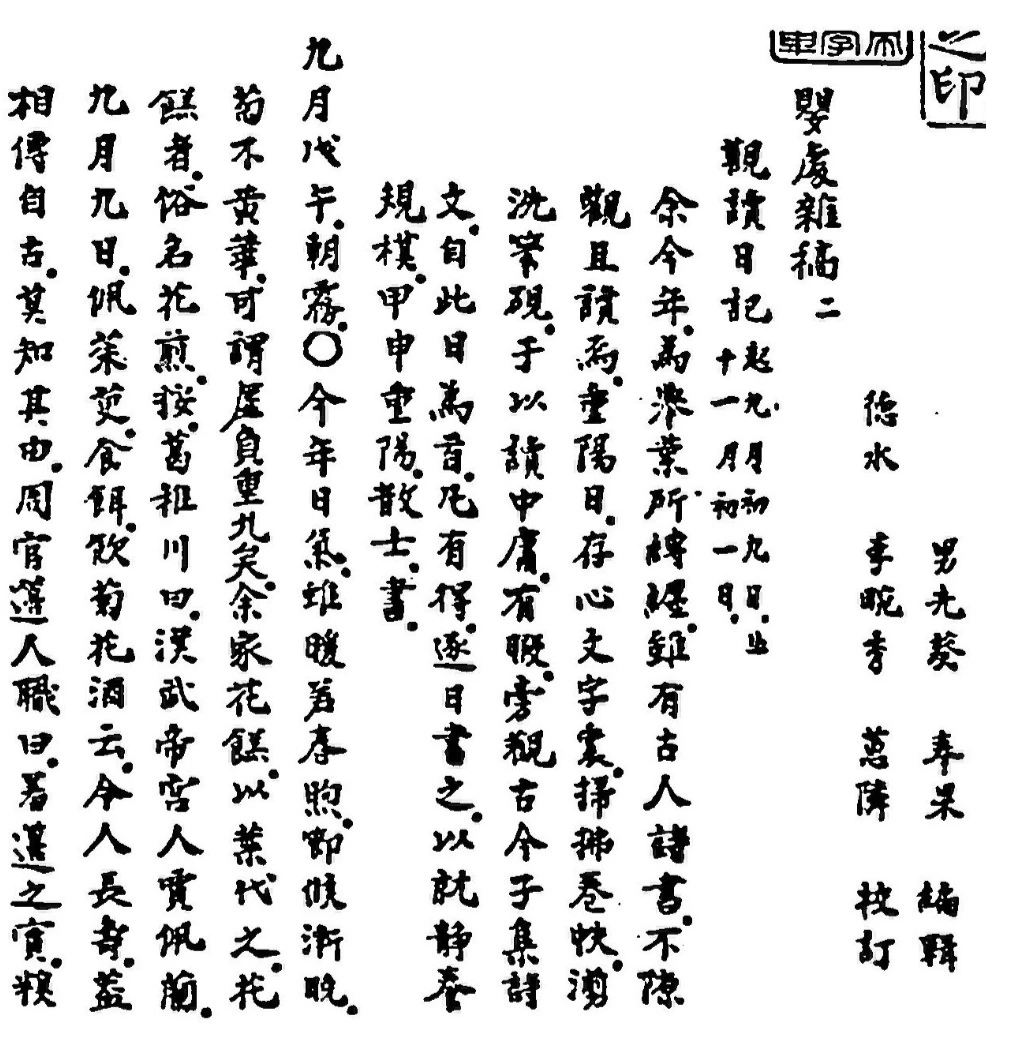 之印
男光葵 奉杲 編輯
德水 李畹秀 蕙隣 校訂
嬰處雜稿二
觀讀日記 起九月初九日。止十一月初一日。
余今年。爲業所縛纒。雖有古人詩書。不隙
觀且讀焉。重陽日。存心文字裏。掃拂卷帙。湔
洗筆硯。于以讀中庸。有暇。旁觀古今子集詩
文。自此日爲首。凡有得。逐日書之。以就靜養
規模。甲申重陽。散士。書。
九月戊午。朝霧。○今年日氣。雖暖若春煦。節候漸晚。
菊不黃華。可謂虛負重九矣。余家花餻。以葉代之。花
餻者。俗名花煎。按。葛稚川曰。漢武帝宮人賈佩蘭。
九月九日。佩茱萸。食餌。飮菊花酒云。令人長壽。蓋
相傳自古。莫知其由。周官籩人職曰。羞籩之實。糗